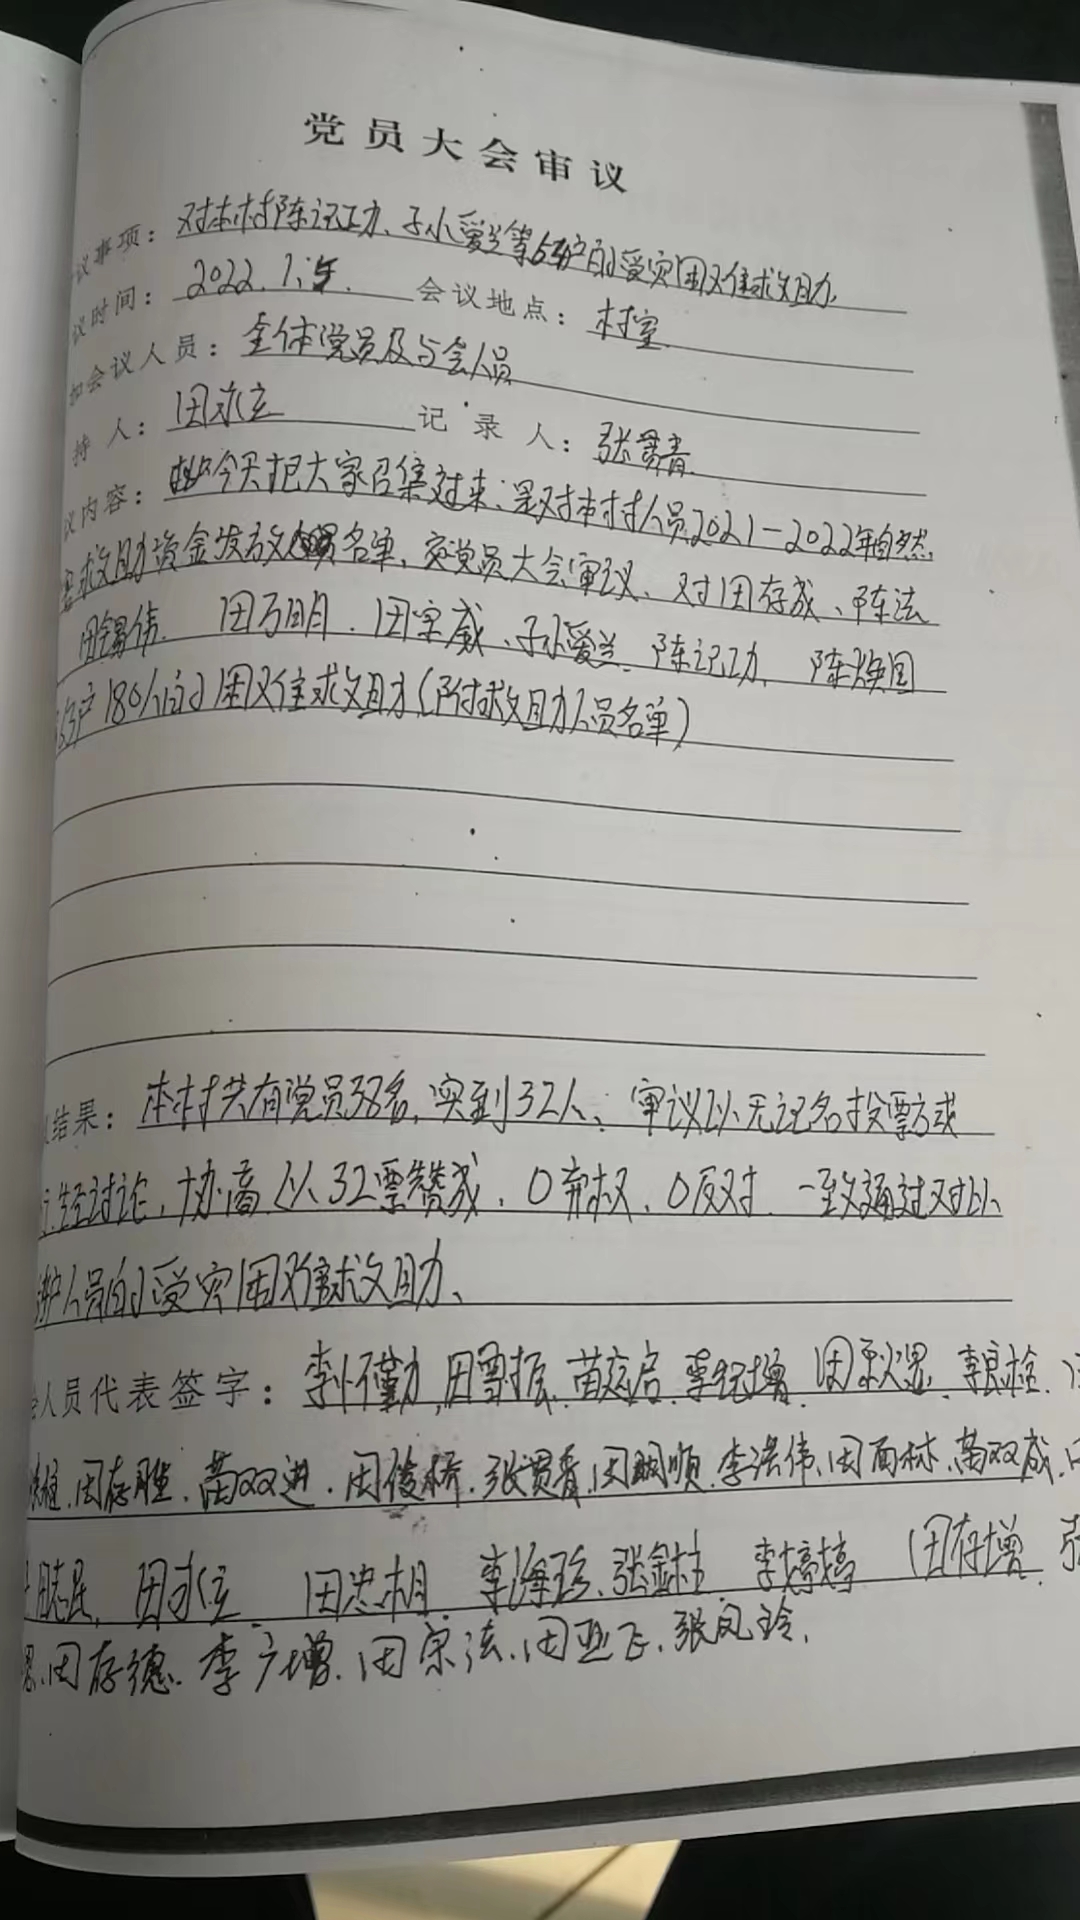 党员大会审议
议事项：对本村陈记功、孙小爱兰等63户的受灾困难求救助
议时间：2022.1.5. 会议地点：村室
加会议人员：全体党员及与会人员
持人：田永立 记录人：张贯青
议内容：今天把大家召集过来、是对本村村人员2021-2022年自然
害求救助资金发放名单、交党员大会审议、对田存成、陈法
田锡伟、田万明、田宗威、孙爱兰、陈记功、陈焕国
63户180人的困难求救助(附求救助人员名单)
结果：本村共有党员38名,实到32人、审议以无记名投票方式
经讨论,协商以32票赞成、0弃权、0反对、一致通过对以
人员的受灾困难求救助、
人员代表签字：李怀勤,田尊振,苗庆启,李纪增、田秋思、李良栓、
雄、田存胜、苗双进、田俊桥、张贯青、田明顺、李浩伟、田雨林、苗双成、
田志昆、田永立 田忠相、李海珍、张金柱 李婷婷 田存增、张
思、田存德、李广增、田宗法、田亚飞、张凤玲、